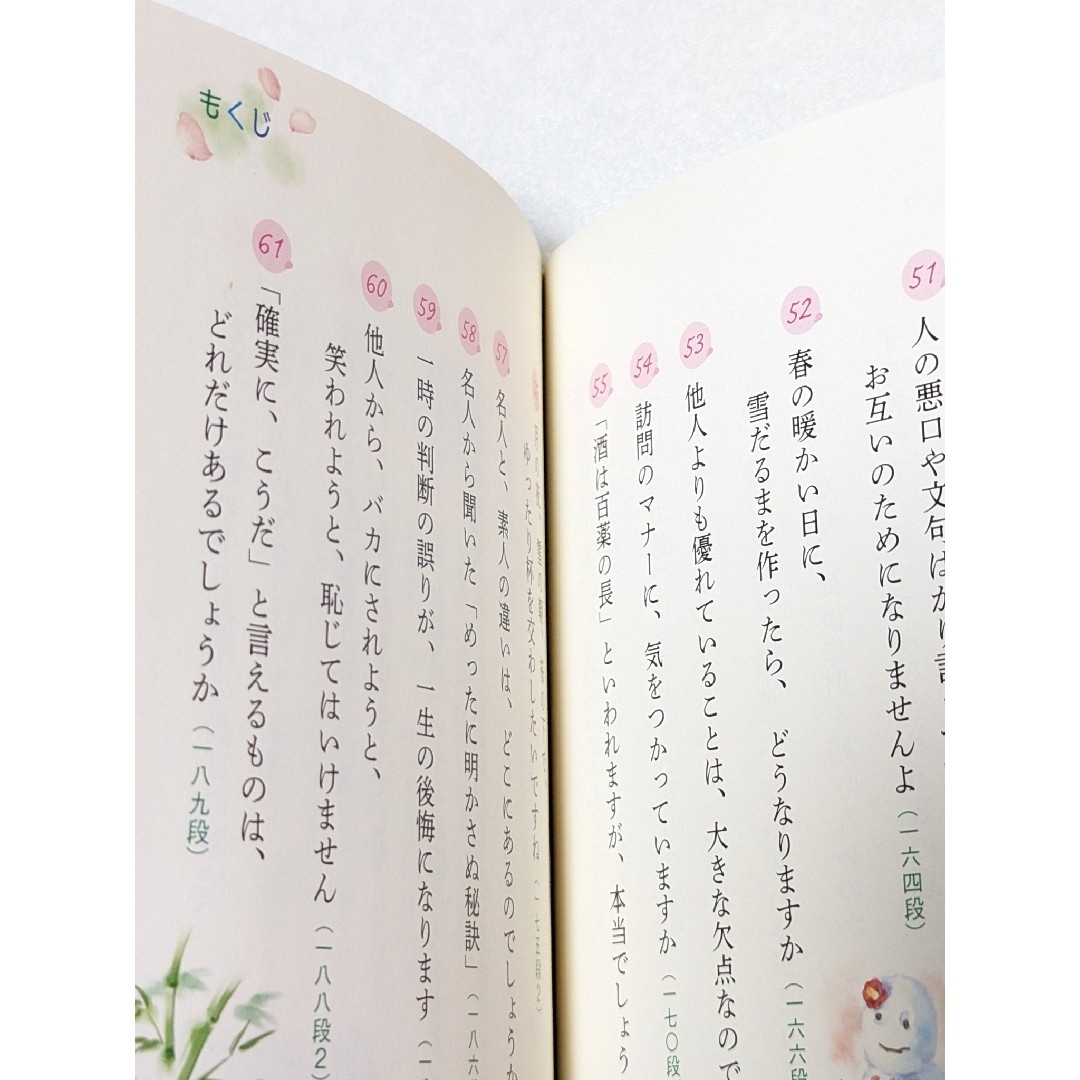 51
人の悪口や文句ばかり言
お互いのためになりませんよ（一六四段）
52
春の暖かい日に、
雪だるまを作ったら、どうなりますか（一六六段
53
他人よりも優れていることは、大きな欠点なので
54
訪問のマナーに、気をつかっていますか（一七〇段
55
「酒は百薬の長」といわれますが、本当でしょう
ゆったり杯を交わしたいですね（一七五段2）
57
名人と、素人の違いは、どこにあるのでしょうか
58
名人から聞いた「めったに明かさぬ秘訣」（一八六
59
一時の判断の誤りが、一生の後悔になります（一
60
他人から、バカにされようと、
笑われようと、恥じてはいけません（一八八段2）
61
「確実に、こうだ」と言えるものは、
どれだけあるでしょうか（一八九段）
もくじ